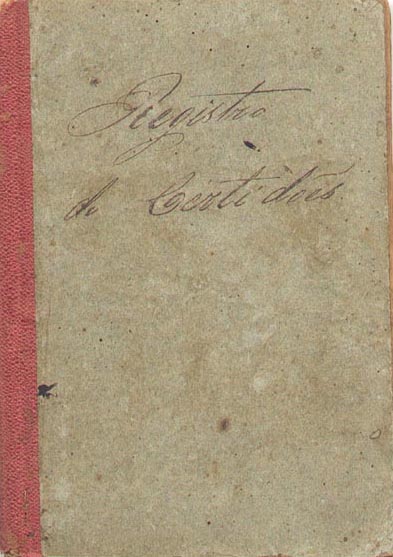 Registro
de Certidões